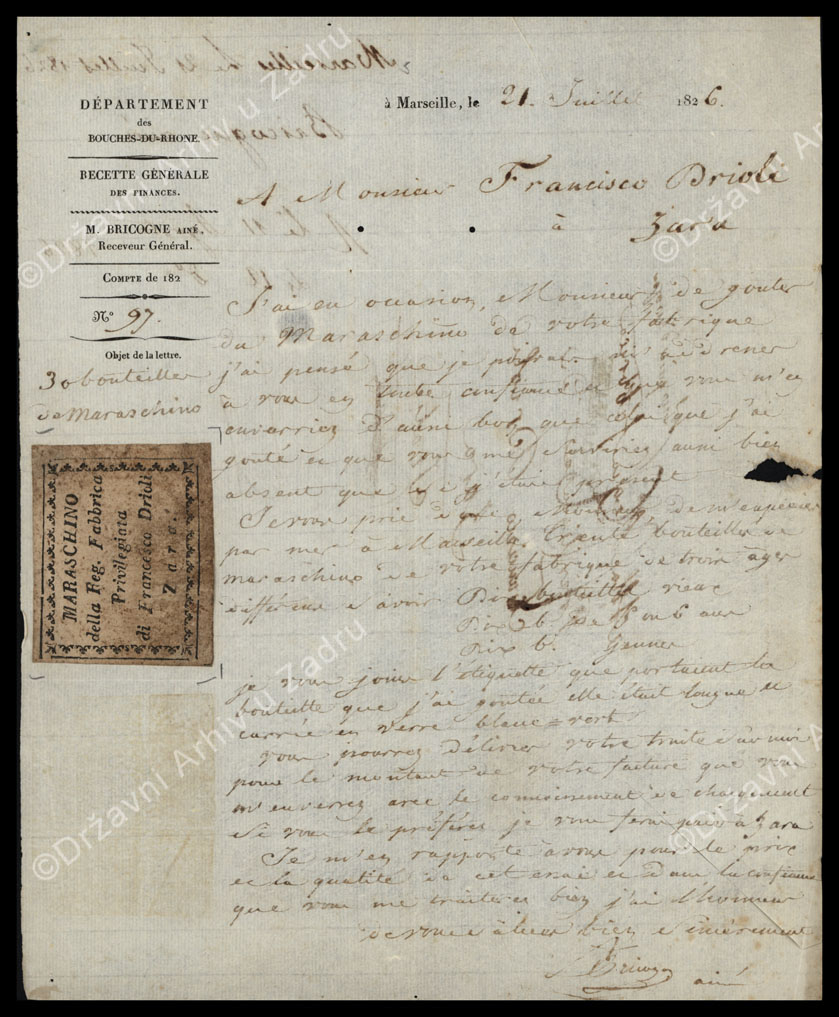 à Marseille, le 21. Juillet 1826.
DÉPARTEMENT
des
BOUCHES-DU-RHONE.
RECETTE GÉNÉRALE
DES FINANCES.
M. BRICOGNE AINÉ,
Receveur Général.
COMPTE de 182
N° 97.
Objet de la lettre.
30 bouteilles
de Maraschino
MARASCHINO
della Reg. Fabbrica
Privilegiata
di Francesco Drioli
Zara.
A Monsieur Francisco Drioli
à Zara
J'ai eu occasion, Monsieur, de gouter
du Maraschino de votre fabrique
j'ai pensé que je pourrai m'adresser
à vous en toute confiance et que vous m'en
enverriez d'aussi bon que celui que j'ai
gouté et que vous me serviriez aussi bien
absent que si étais présent
Je vous prie Monsieur, de m'expédier
par mer à Marseille Trente bouteilles de
maraschino de votre fabrique de trois ages
différens savoir Dix bouteilles vieux
Dix b. de 5 ou 6 ans
Dix b. Jeunes
je vous joins l'étiquette que portaient la
bouteille que j'ai goutée elle était longue et
carrée en verre blanc = vert
vous pourrez délivrer votre traite sur moi
pour le montant de votre facture que vous
m'enverrez avec le connoissement de chargement
Si vous le préférez je vous ferai payer à Zara
Je m'en rapporte à vous pour le prix
et la qualité de cet essai et dans la confiance
que vous me traiterez bien j'ai l'honneur
de vous saluer bien sincèrement
Bricogne
ainé
©Državni Arhiv u Zadru
©Državni Arhiv u Zadru
©Državni Arhiv u Zadru
©Državni Arhiv u Zadru